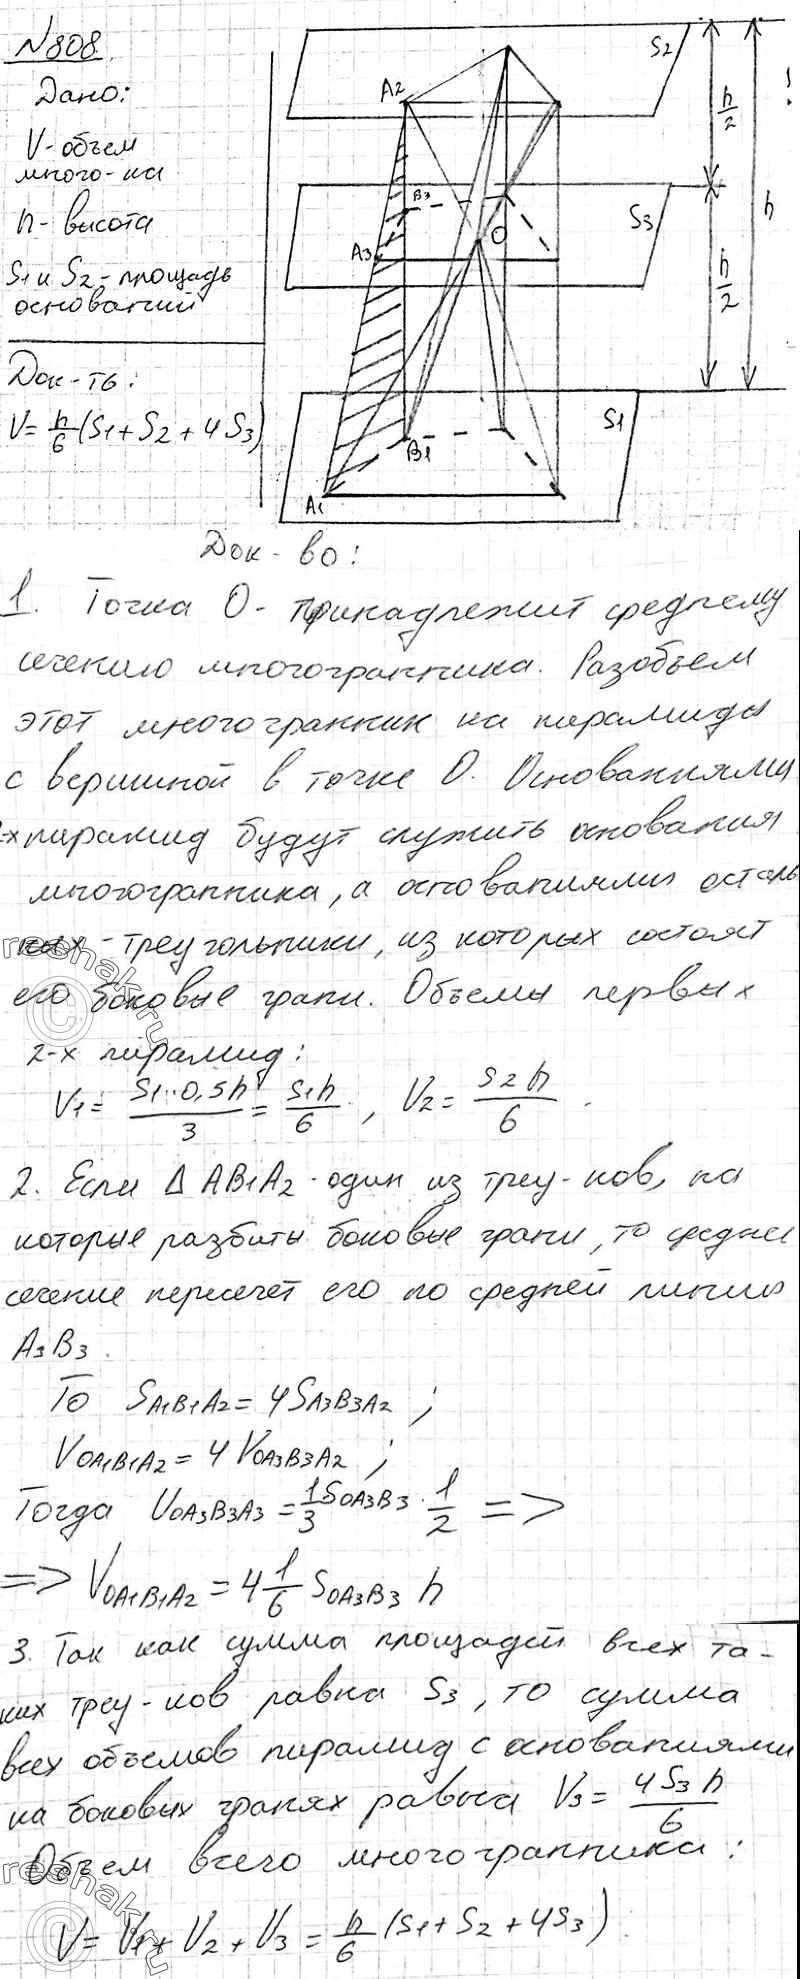 №808.
Дано:
V-объем
много-ка
h- высота
S1 и S2- площадь
оснований
Док-ть:
V= h/6 (S1+S2+4S3)
S2
A2
h/2
B3
S3
h
O
A3
h/2
S1
B1
A1
Док-во:
1. Точка O- принадлежит среднему
сечению многогранника. Разобьем
этот многогранник на пирамиды
с вершиной в точке O. Основаниями
2-х пирамид будут служить основания
многогранника, а основаниями осталь
ных - треугольники, из которых состоят
его боковые грани. Объемы первых
2-х пирамид:
V1= S1·0,5h/3 = S1h/6 , V2= S2h/6 .
2. Если Δ AB1A2 - один из треу-ков, на
которые разбиты боковые грани, то среднее
сечение пересечет его по средней линии
A3B3.
То SA1B1A2= 4SA3B3A2 ;
VOA1B1A2= 4 VOA3B3A2 ;
Тогда VOA3B3A3 = 1/3 SOA3B3 · 1/2 =>
=> VOA1B1A2 = 4 1/6 SOA3B3 h
3. Так как сумма площадей всех та-
ких треу-ков равна S3, то сумма
всех объемов пирамид с основаниями
на боковых гранях равна V3= 4S3h/6
Объем всего многогранника:
V= V1+V2+V3 = h/6 (S1+S2+4S3)
reshak.ru
reshak.ru